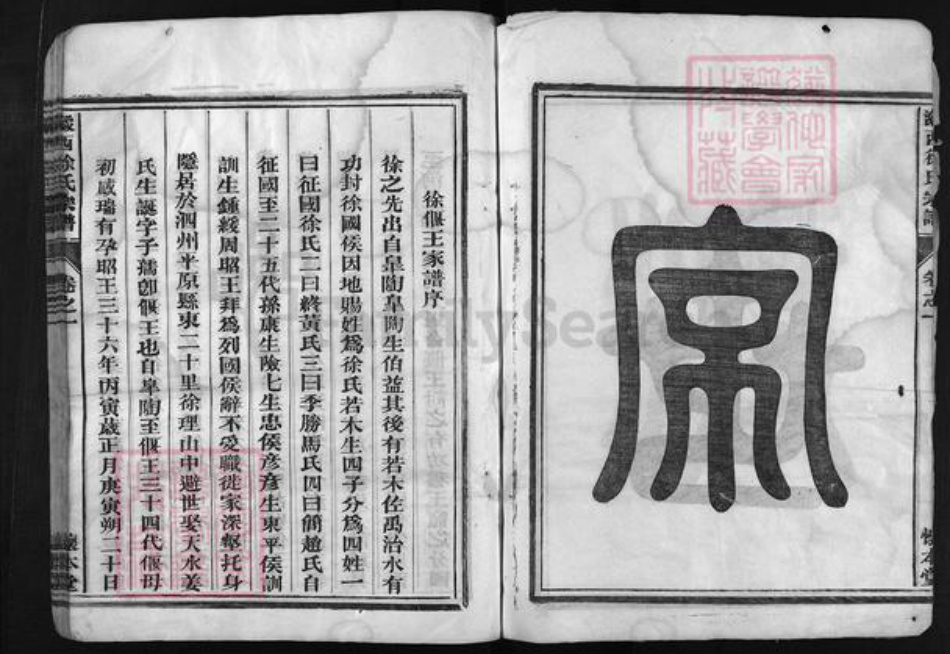 宗
徐偃王家譜序
徐之先出自皐陶皐陶生伯益其後有若木佐禹治水有
功封徐國侯因地賜姓爲徐氏若木生四子分爲四姓一
曰征國徐氏二曰終黃氏三曰季勝馬氏四曰簡趙氏自
征國至二十五代孫康生險七生忠侯彥彥生東平侯訓
訓生鍾綏周昭王拜爲列國侯辭不受職徙家深壑托身
隱居於泗州半原縣東二十里徐理山中避世娶天水姜
氏生誕字子孺卽偃王也自皐陶至偃王三十四代偃母
初感瑞有孕昭王三十六年丙寅歲正月庚寅朔二十日
西徐氏宗譜
卷之一
懷本堂
FamilySearch